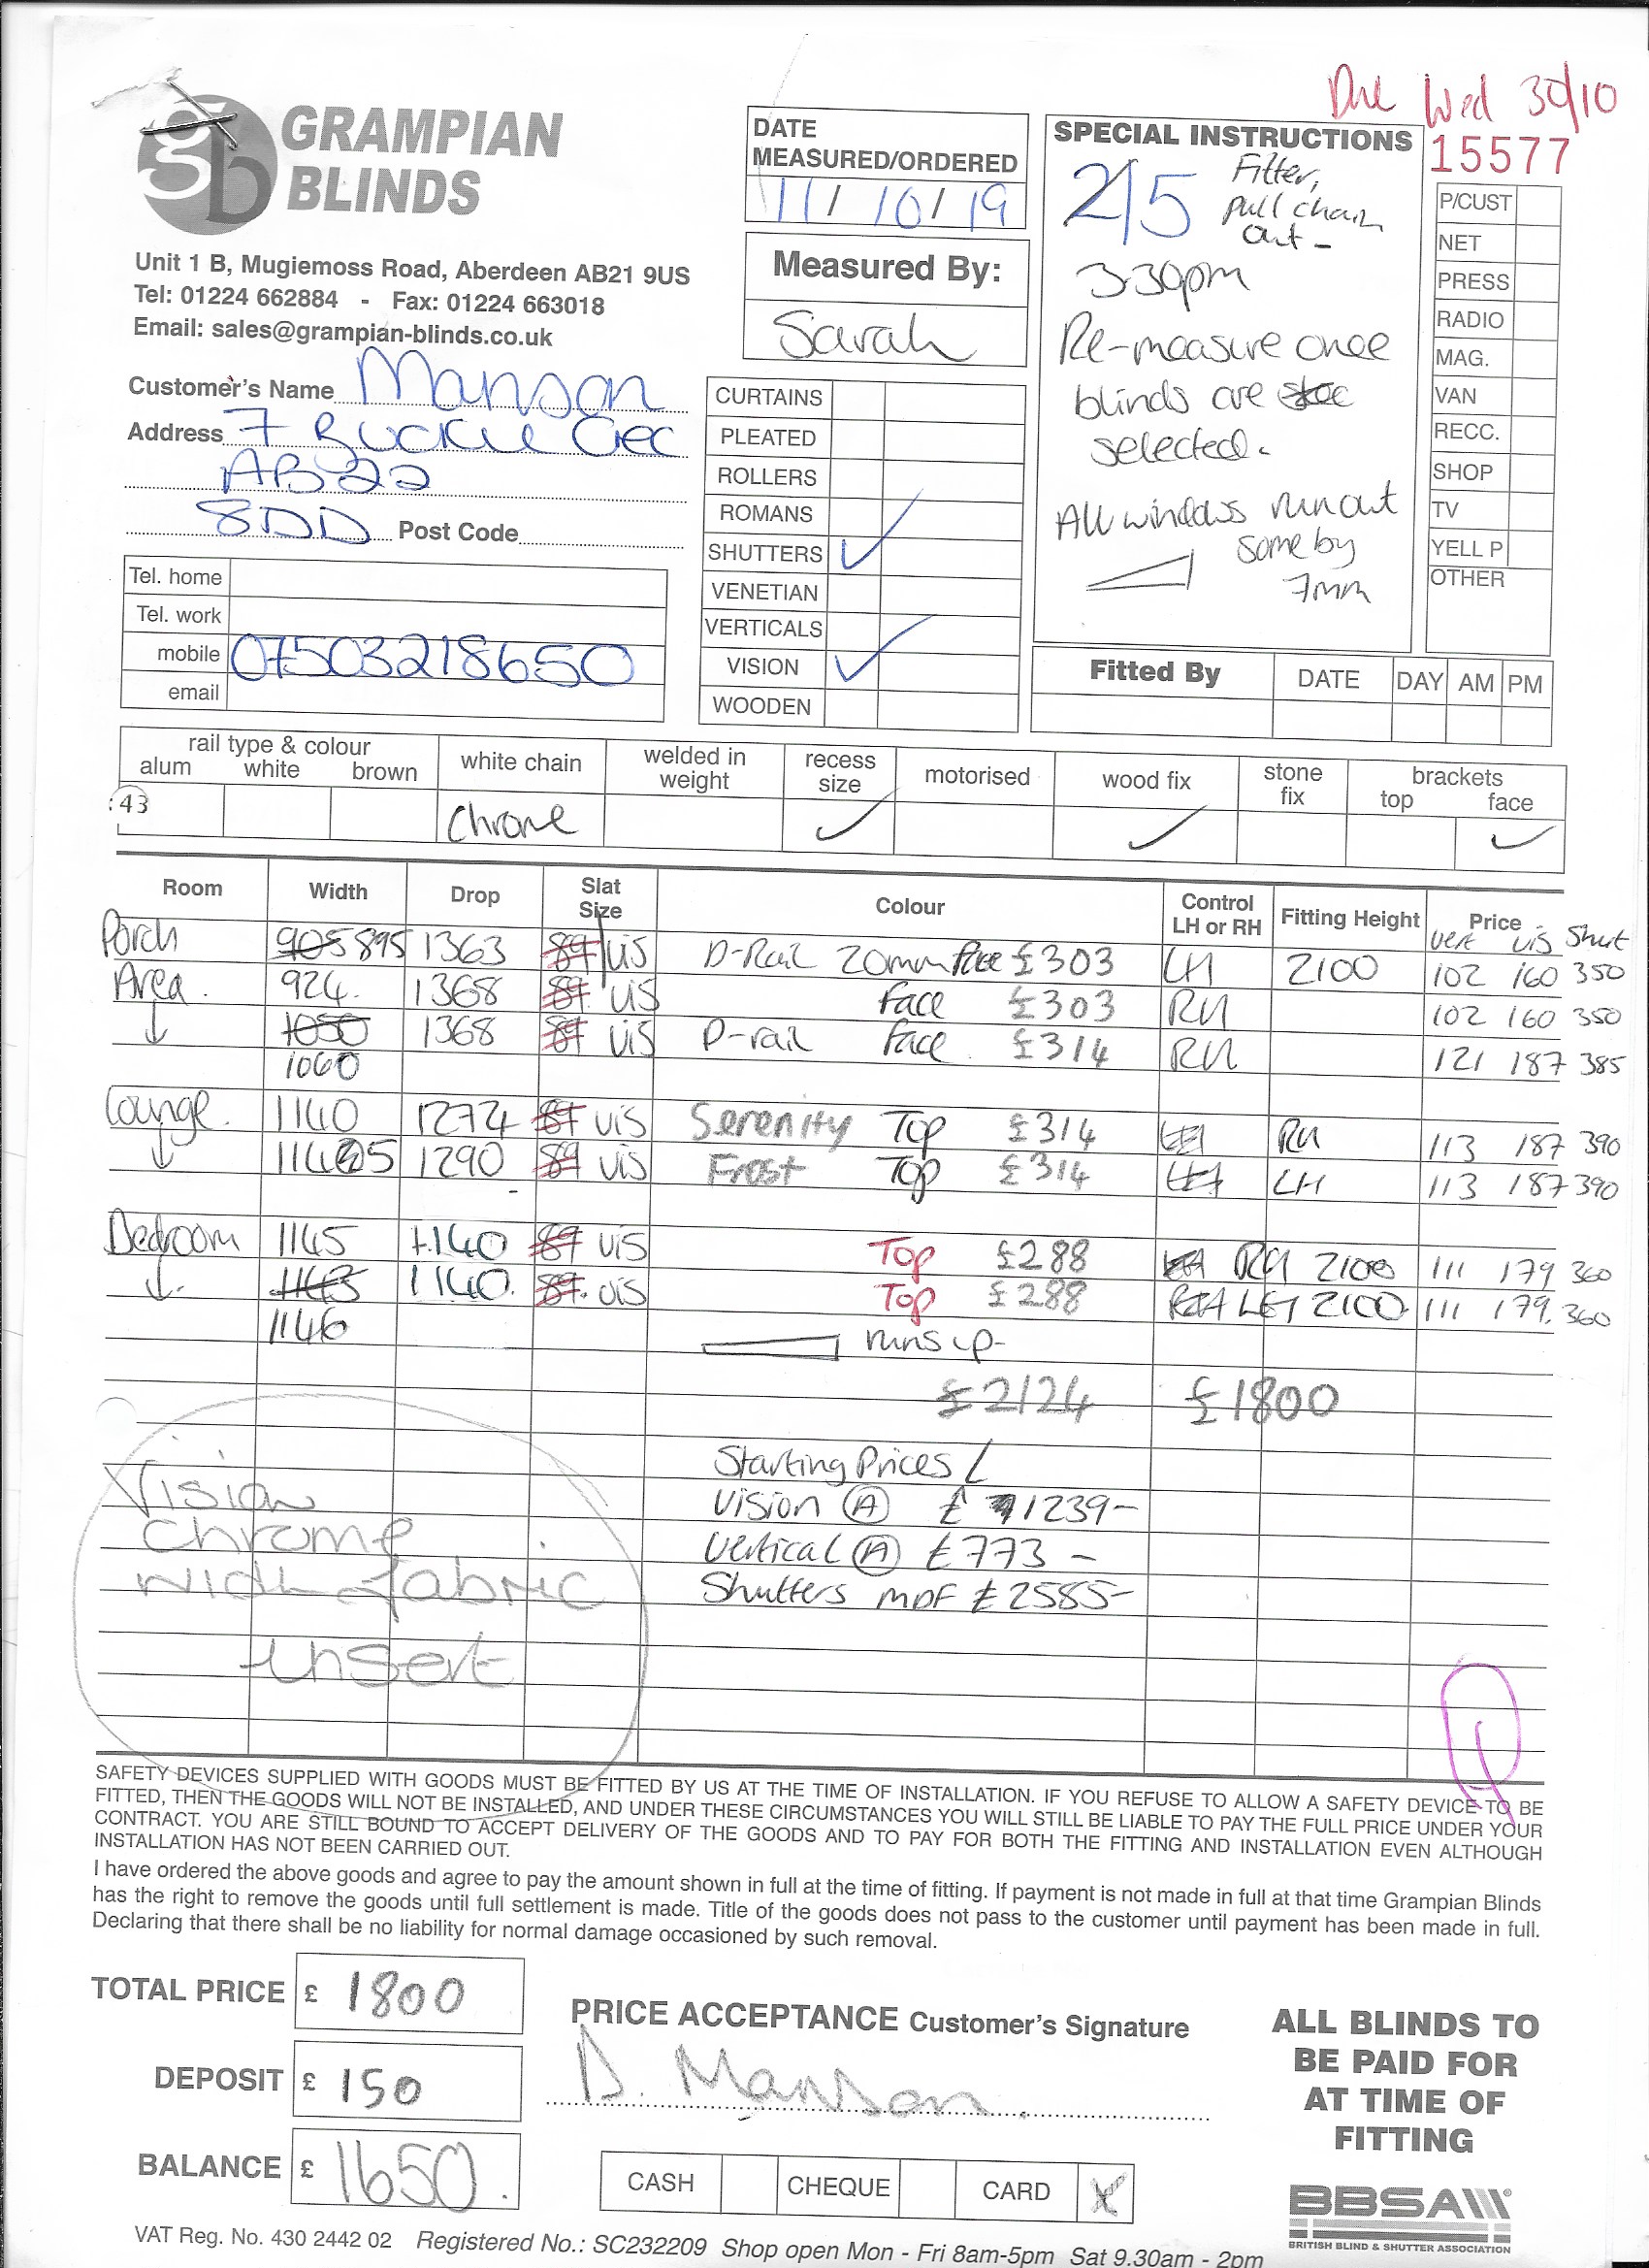 Due Wed 30/10
GRAMPIAN
BLINDS
Unit 1 B, Mugiemoss Road, Aberdeen AB21 9US
Tel: 01224 662884 - Fax: 01224 663018
Email: sales@grampian-blinds.co.uk
Customer's Name Manson
Address 7 Buckie Cres
AB22
8DD Post Code
Tel. home
Tel. work
mobile 07503218650
email
DATE
MEASURED/ORDERED
11/ 10/ 19
Measured By:
Sarah
CURTAINS
PLEATED
ROLLERS
ROMANS
SHUTTERS ✓
VENETIAN
VERTICALS
VISION ✓
WOODEN
SPECIAL INSTRUCTIONS
2/5 Fitter,
pull chain
out -
3.30pm
Re-measure once
blinds are
selected.
All windows run out
some by
7mm
15577
P/CUST
NET
PRESS
RADIO
MAG.
VAN
RECC.
SHOP
TV
YELL P
OTHER
Fitted By DATE DAY AM PM
rail type & colour
alum white brown
white chain
welded in
weight
recess
size
motorised
wood fix
stone
fix
brackets
top face
:43 Chrome ✓ ✓ ✓
Room Width Drop Slat Size Colour Control LH or RH Fitting Height Price
vert vis Shut
Porch 905 895 1363 89 vis D-Rail 20mm face £303 LH 2100 102 160 350
Area. 924. 1368 89 vis face £303 RH 102 160 350
↓ 1050 1368 89 vis D-rail face £314 RH 121 187 385
1060
Lounge. 1140 1274 89 vis Serenity Top £314 LH RH 113 187 390
↓ 1145 1290 89 vis Frost Top £314 LH LH 113 187 390
Bedroom 1145 1140 89 vis Top £288 LH RH 2100 111 179 360
↓ 1143 1140. 89. vis Top £288 RH LH 2100. 111 179. 360
1146 runs up-
£2124 £1800
Starting Prices
Vision A £ 1239-
Vertical A £773 -
Shutters MDF £2585-
Vision
chrome
with fabric
insert
SAFETY DEVICES SUPPLIED WITH GOODS MUST BE FITTED BY US AT THE TIME OF INSTALLATION. IF YOU REFUSE TO ALLOW A SAFETY DEVICE TO BE
FITTED, THEN THE GOODS WILL NOT BE INSTALLED, AND UNDER THESE CIRCUMSTANCES YOU WILL STILL BE LIABLE TO PAY THE FULL PRICE UNDER YOUR
CONTRACT. YOU ARE STILL BOUND TO ACCEPT DELIVERY OF THE GOODS AND TO PAY FOR BOTH THE FITTING AND INSTALLATION EVEN ALTHOUGH
INSTALLATION HAS NOT BEEN CARRIED OUT.
I have ordered the above goods and agree to pay the amount shown in full at the time of fitting. If payment is not made in full at that time Grampian Blinds
has the right to remove the goods until full settlement is made. Title of the goods does not pass to the customer until payment has been made in full.
Declaring that there shall be no liability for normal damage occasioned by such removal.
TOTAL PRICE £ 1800
DEPOSIT £ 150
BALANCE £ 1650.
PRICE ACCEPTANCE Customer's Signature
D. Manson.
CASH CHEQUE CARD X
ALL BLINDS TO
BE PAID FOR
AT TIME OF
FITTING
BBSA
BRITISH BLIND & SHUTTER ASSOCIATION
VAT Reg. No. 430 2442 02 Registered No.: SC232209 Shop open Mon - Fri 8am-5pm Sat 9.30am - 2pm